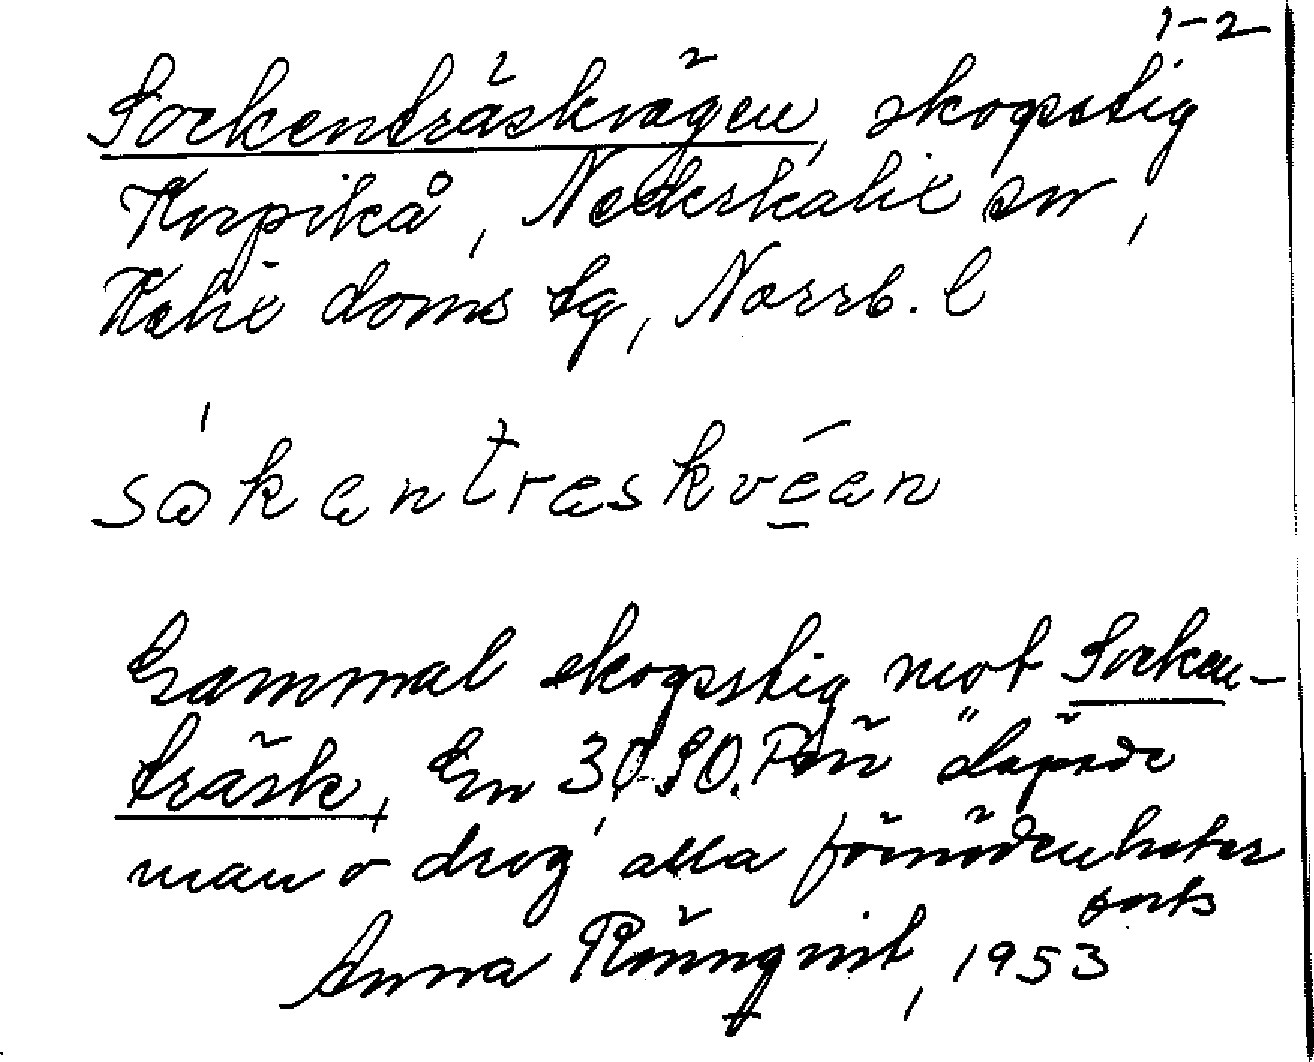 1-2
Sockenträskvägen, skogsstig
Korpikå, Nederkalix sn,
Kalix doms tg, Norrb. l
såkæntræskvéæn
Gammal skogsstig mot Socken-
träsk, En 30.90. Här släpade
man o drog alla förnödenheter
forts
Anna Rönnqvist, 1953